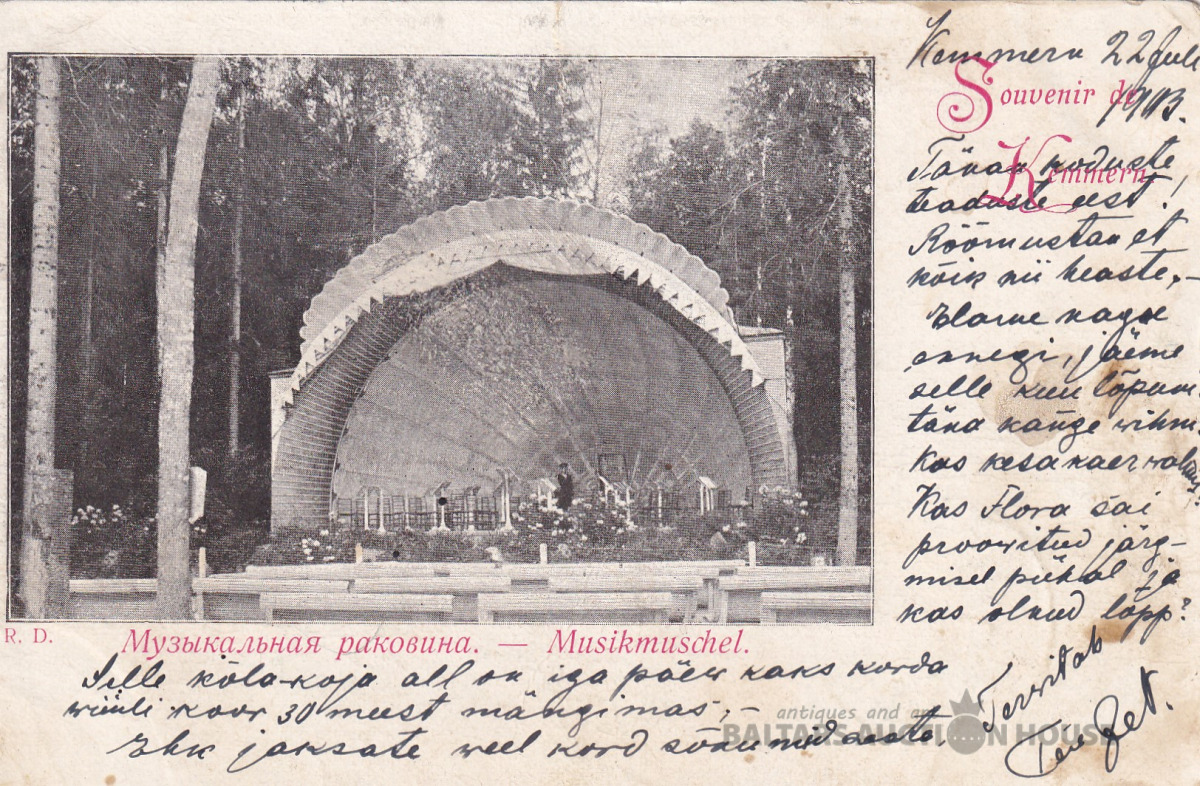 Kemmern 22 Juli
1903.
Souvenir de
Kemmern
Tänan koduste
teaduste eest!
Rõõmustan et
kõik nii heaste,-
Elame nagu
ennegi, jääme
selle kuu lõpuni
täna kange wihm.
Kas kesa kaer
Kas Flora sai
proowitud järg-
misel pühal ja
kas olnud lõpp?
Terwitab
R. D.
Музыкальная раковина. — Musikmuschel.
Selle kõla-koja all on iga päew kaks korda
wiiuli koor 30 meest mängimas,-
Ehk jaksate weel kord sõnumid saata.
antiques and art
BALTARS AUCTION HOUSE